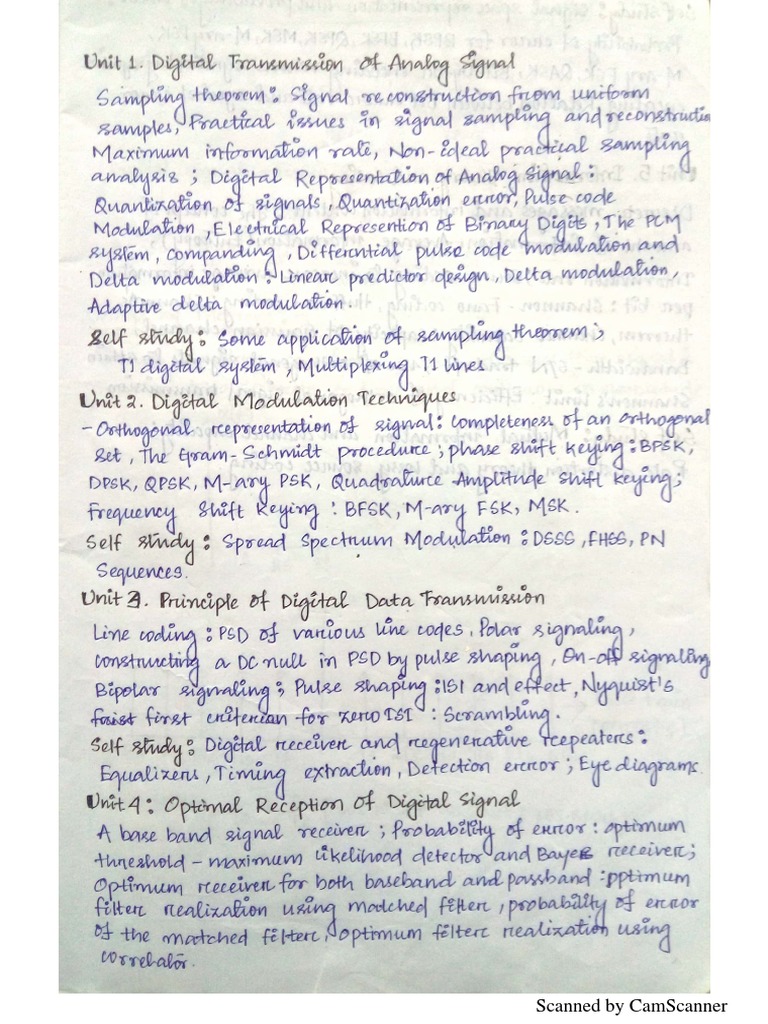 Unit 1. Digital Transmission of Analog Signal
Sampling theorem: Signal reconstruction from uniform
samples, Practical issues in signal sampling and reconstructio
Maximum information rate, Non-ideal practical sampling
analysis ; Digital Representation of Analog Signal:
Quantization of signals, Quantization error, Pulse code
Modulation, Electrical Represention of Binary Digits, The PCM
system, companding, Differntial pulse code modulation and
Delta modulation : Linear predictor design, Delta modulation,
Adaptive delta modulation.
Self study: Some application of sampling theorem ;
T1 digital system, Multiplexing T1 lines
Unit 2. Digital Modulation Techniques
- Orthogonal representation of signal: Completeness of an orthogonal
set, The Gram-Schmidt procedure ; phase shift keying : BPSK,
DPSK, QPSK, M-ary PSK, Quadrature Amplitude shift keying;
Frequency Shift Keying : BFSK, M-ary FSK, MSK.
Self study: Spread Spectrum Modulation : DSSS, FHSS, PN
Sequences.
Unit 3. Principle of Digital Data Transmission
Line coding : PSD of various line codes, Polar signaling,
constructing a DC null in PSD by pulse shaping, On-off signaling,
Bipolar signaling ; Pulse shaping : ISI and effect, Nyquist's
first criterion for zero ISI : Scrambling.
Self study: Digital receiver and regenerative repeaters:
Equalizers, Timing extraction, Detection error ; Eye diagrams.
Unit 4: Optimal Reception of Digital Signal
A base band signal receiver ; Probability of error : optimum
threshold - maximum likelihood detector and Bayes receiver;
Optimum receiver for both baseband and passband : optimum
filter realization using matched filter, probability of error
of the matched filter, optimum filter realization using
correlator.
Scanned by CamScanner